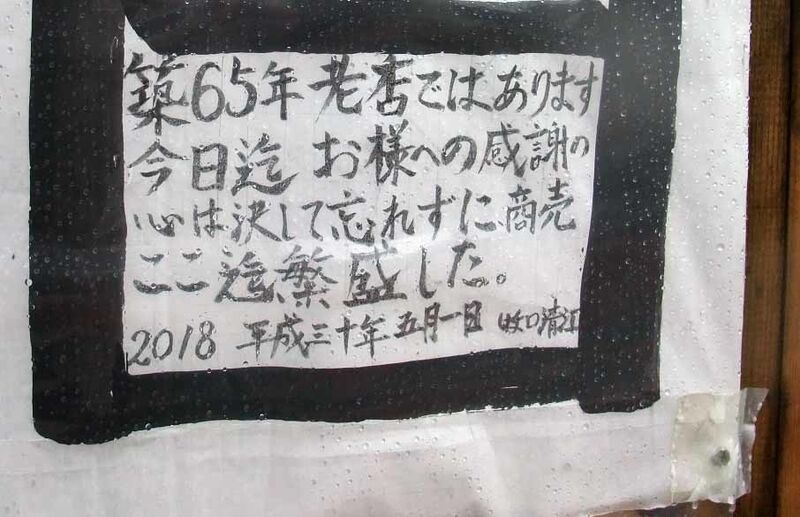 築65年 老店ではあります
今日迄 お様への感謝の
心は決して忘れずに商売
ここ迄繁盛した。
2018 平成三十年 五月一日 牧口清江